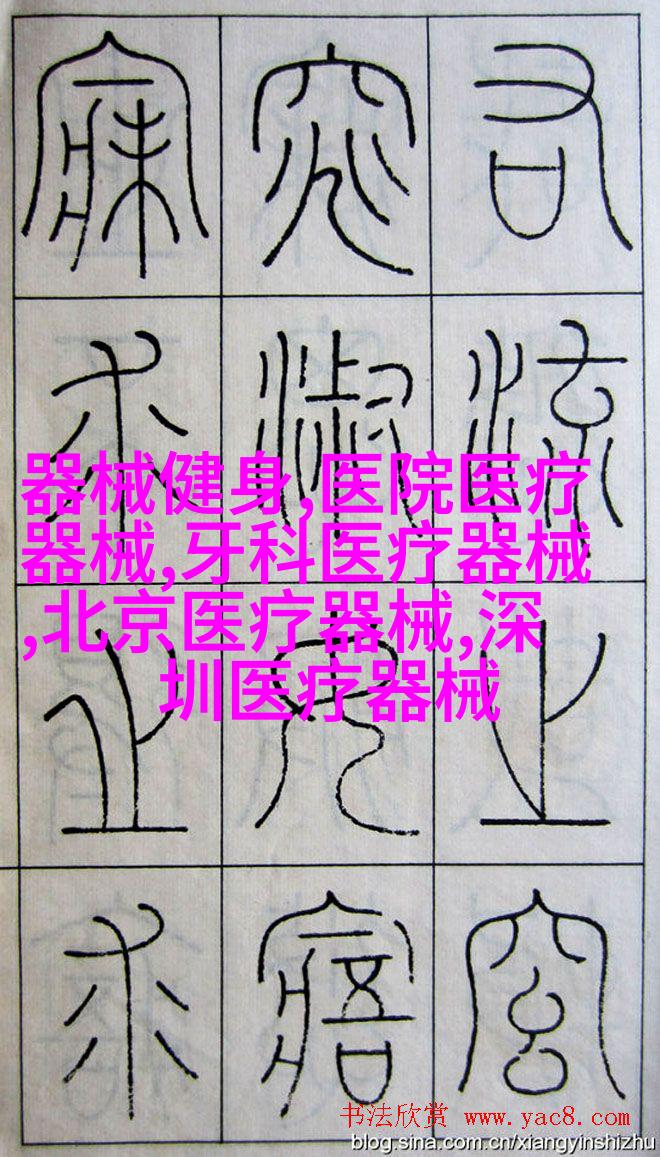 右流之窈
窕淑女寤
寐求之求
器械健身,医院医疗
器械,牙科医疗器械
,北京医疗器械,深
圳医疗器械
书法欣赏 www.yac8.com
blog.sina.com.cn/xiangyinshizhu